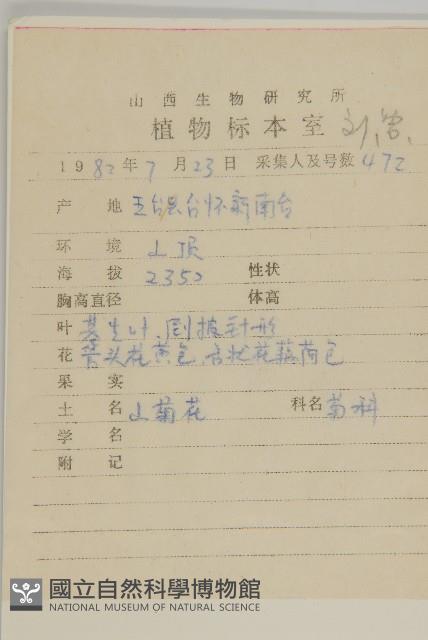 山西生物研究所
植物标本室
1982年7月23日 采集人及号数 472
产地 五台县台怀新南台
环境 山顶
海拔 2350 性状
胸高直径 体高
叶 基生叶,剧披针形
花 管头花黄色,舌状花藕荷色
果实
土名 山菊花 科名 菊科
学名
附记
國立自然科學博物館
NATIONAL MUSEUM OF NATURAL SCIENCE